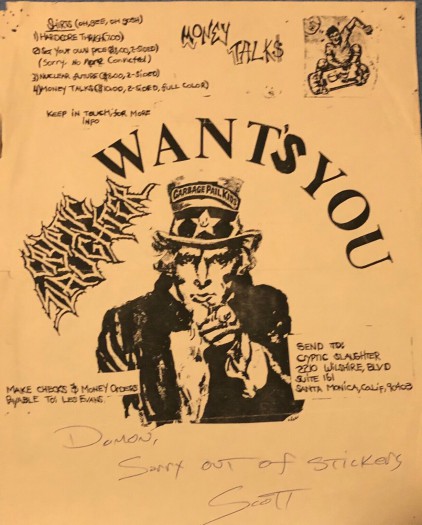 SHIRTS (OH, GEE, OH GOSH)
1) HARDCORE THRASH(7.00)
2) SET YOUR OWN PACE($8.00, 2-SIDED)
(SORRY. NO MORE CONVICTED)
3) NUCLEAR FUTURE($8.00, 2-SIDED)
4) MONEY TALKS($10.00, 2-SIDED, FULL COLOR)
KEEP IN TOUCH, FOR MORE
INFO
MONEY
TALK$
WANT'S YOU
GARBAGE PAIL KIDS
CRYPTIC
SLAUGHTER
SEND TO:
CRYPTIC SLAUGHTER
2210 WILSHIRE, BLVD
SUITE 161
SANTA MONICA, CALIF, 90403
MAKE CHECKS & MONEY ORDERS
PAYABLE TO: LES EVANS.
DAMON,
SORRY OUT OF STICKERS
SCOTT